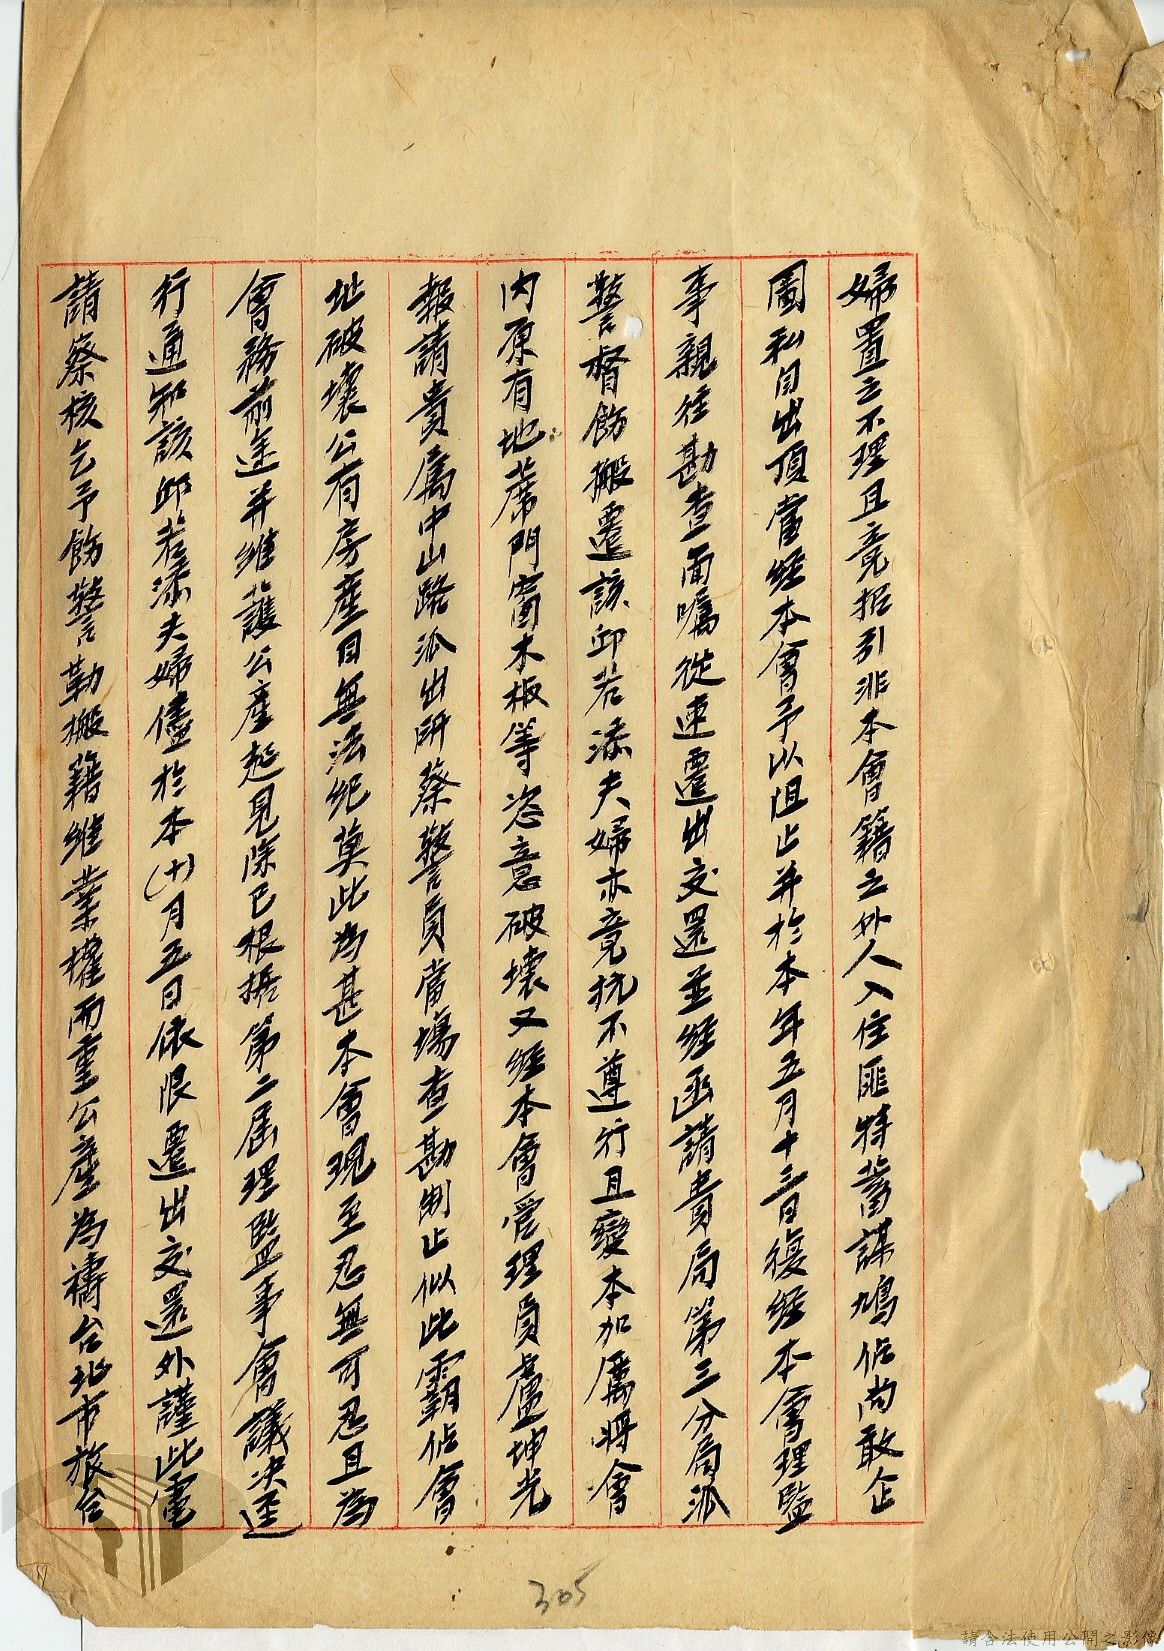 婦置之不理且竟招引非本會籍之外人入住匪特蓄謀鳩佔尚敢企
圖私自出頂當經本會予以阻止并於本年五月十三日復經本會理監
事親往勘查面囑從速遷出交還並經函請貴局第三分局派
警督飭搬遷該邱若添夫婦亦竟抗不遵行且變本加厲將會
內原有地蓆門窗木板等恣意破壞又經本會管理員盧坤光
報請貴屬中山路派出所蔡警員當場查勘制止似此霸佔會
址破壞公有房產目無法紀莫此為甚本會現至忍無可忍且為
會務前途并維護公產起見除已根據第二屆理監事會議決逕
行通知該邱若添夫婦儘於本(十)月五日依限遷出交還外謹此電
請察核乞予飭警勒搬籍維業權而重公產為禱台北市旅台
305
請合法使用公開之影像